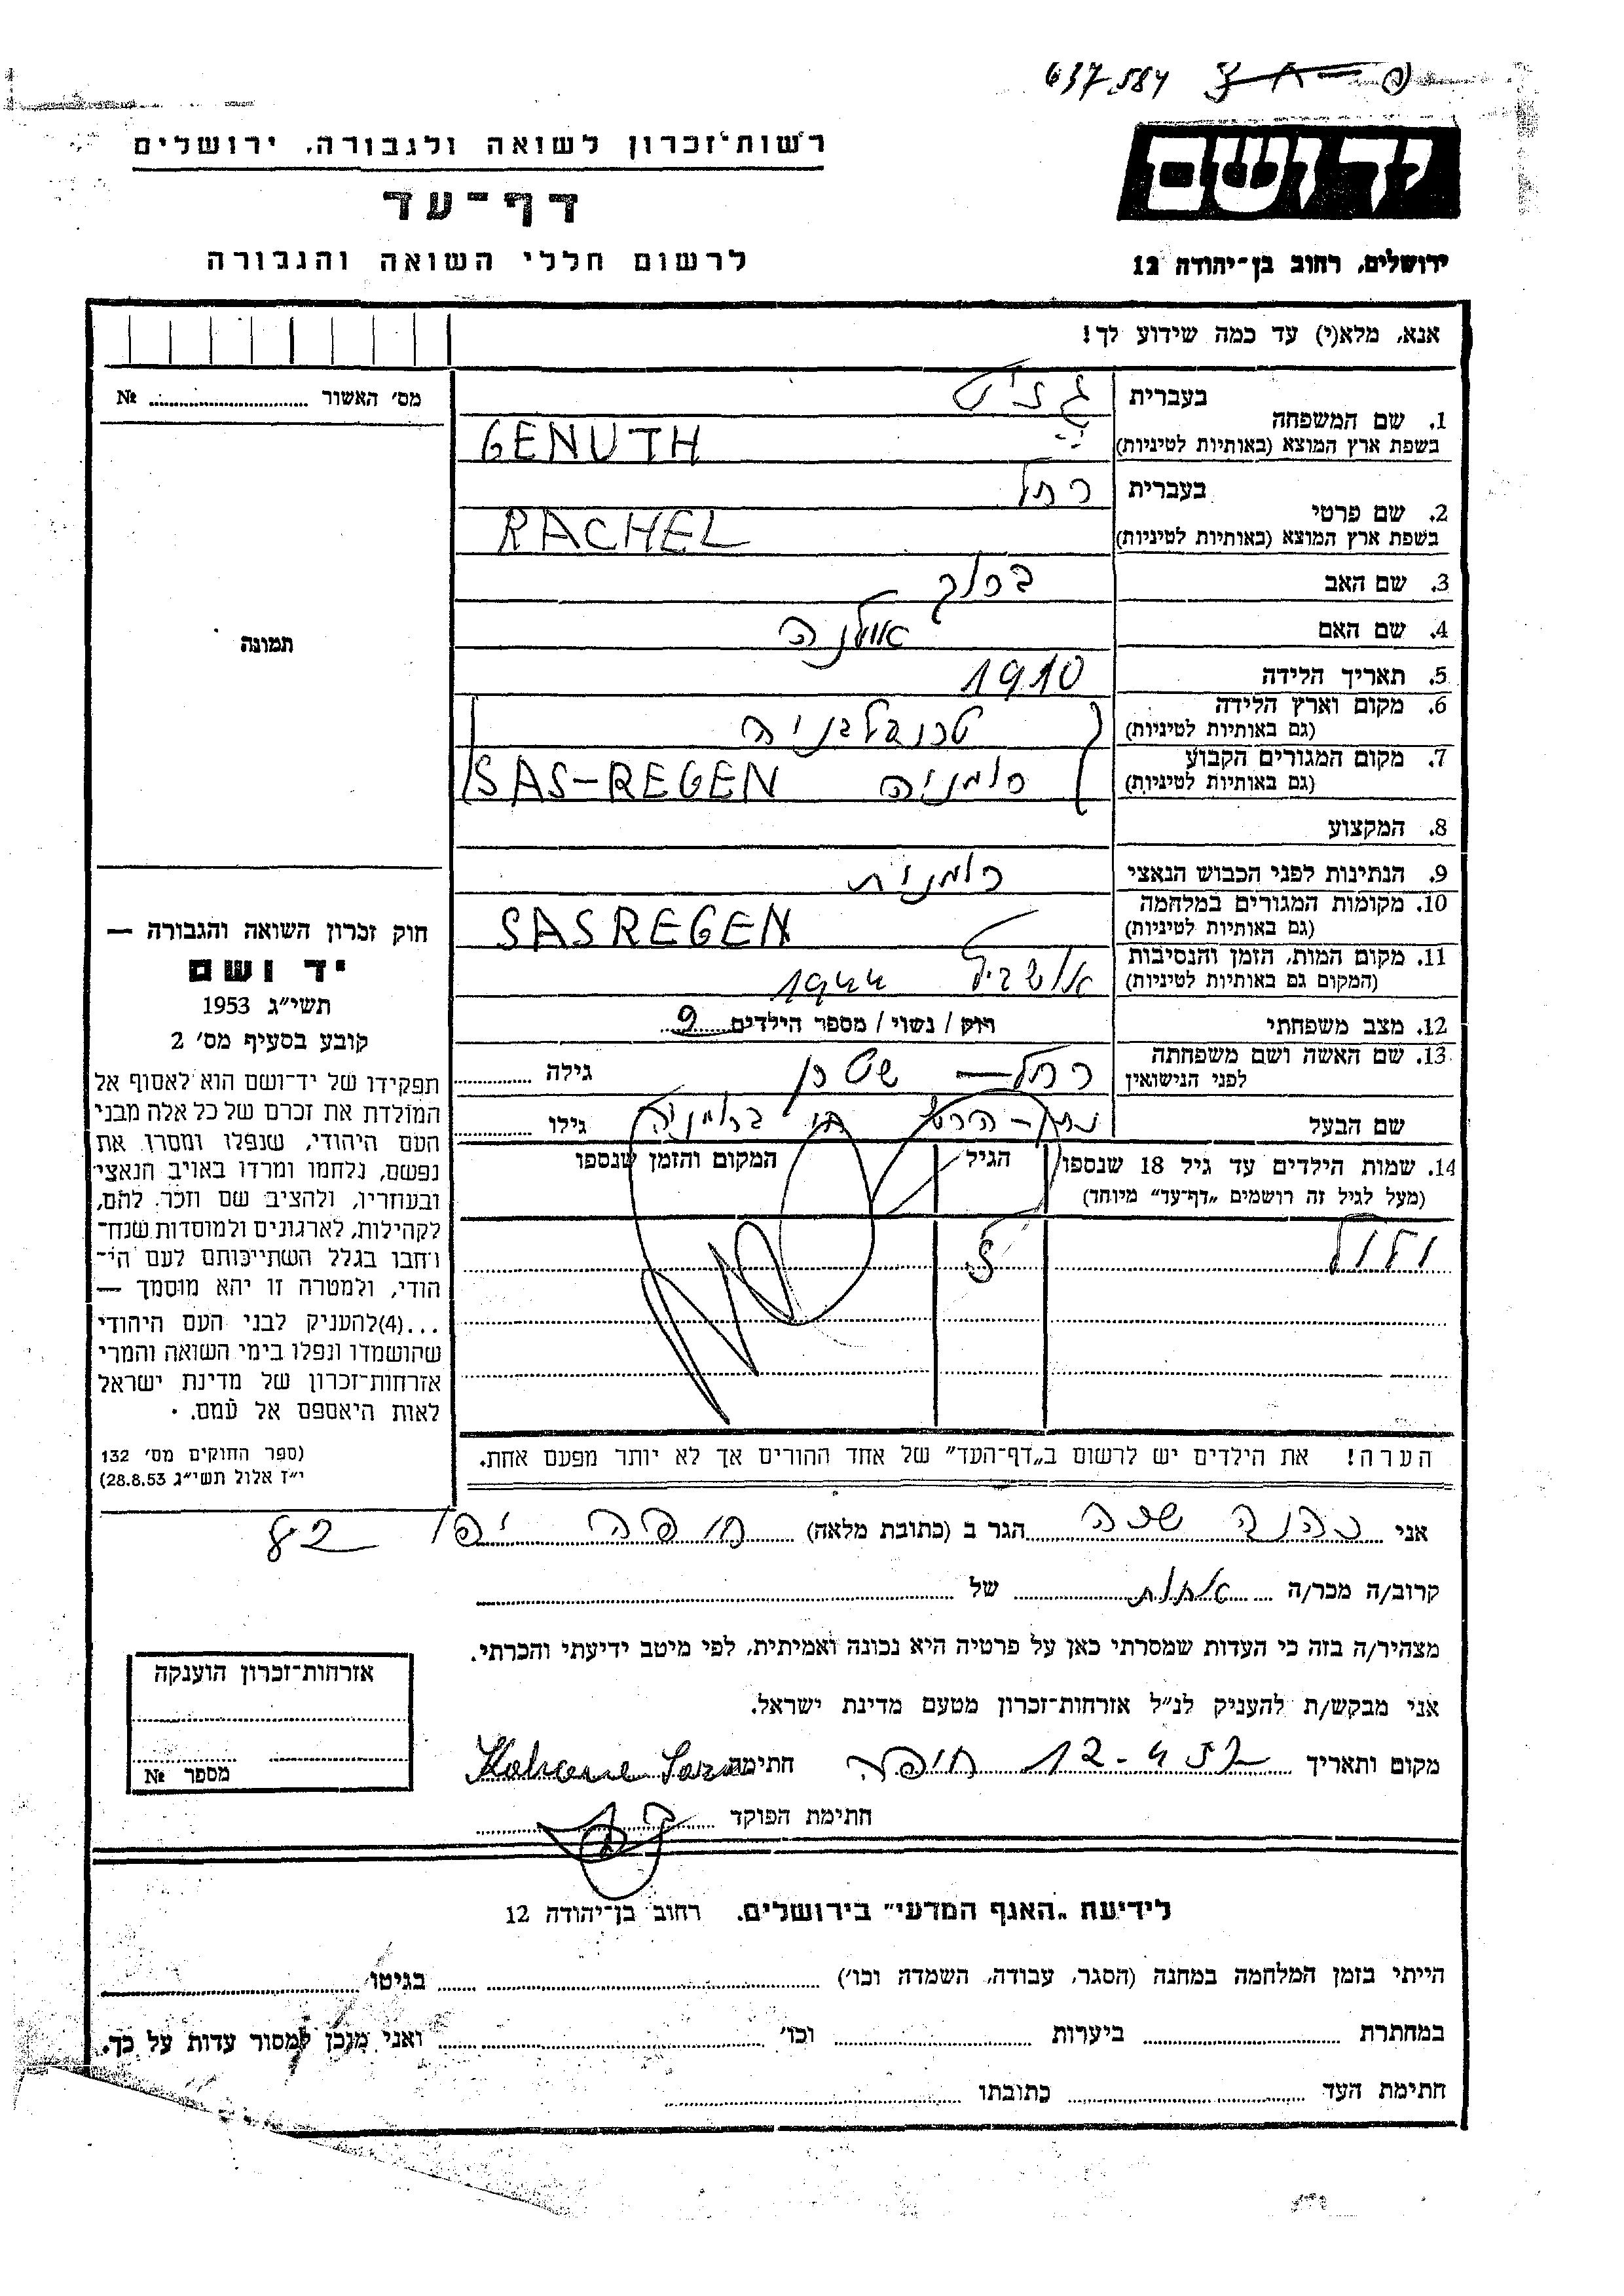 637584
רשות־זכרון לשואה ולגבורה, ירושלים
יד ושם
דף־עד
לרשום חללי השואה והגבורה
ירושלים, רחוב בן־יהודה 12
אנא, מלא(י) עד כמה שידוע לך!
מס׳ האשור № 
1. שם המשפחה
בעברית
בשפת ארץ המוצא (באותיות לטיניות) GENUTH
2. שם פרטי
בעברית רחל
בשפת ארץ המוצא (באותיות לטיניות) RACHEL
3. שם האב ברוך
4. שם האם
תמונה
5. תאריך הלידה 1910
6. מקום וארץ הלידה
(גם באותיות לטיניות) טרנסילבניה
7. מקום המגורים הקבוע
(גם באותיות לטיניות) רומניה SAS-REGEN
8. המקצוע
9. הנתינות לפני הכבוש הנאצי רומנית
10. מקומות המגורים במלחמה
(גם באותיות לטיניות) SASREGEN
11. מקום המות, הזמן והנסיבות
(המקום גם באותיות לטיניות) 1944
12. מצב משפחתי רוק / נשוי / מספר הילדים 9
13. שם האשה ושם משפחתה
לפני הנישואין רחל — שטרן גילה
שם הבעל גילו
14. שמות הילדים עד גיל 18 שנספו
(מעל לגיל זה רושמים „דף־עד” מיוחד)
הגיל
המקום והזמן שנספו
חוק זכרון השואה והגבורה —
יד ושם
תשי״ג 1953
קובע בסעיף מס׳ 2
תפקידו של יד־ושם הוא לאסוף אל
המולדת את זכרם של כל אלה מבני
העם היהודי, שנפלו ומסרו את
נפשם, נלחמו ומרדו באויב הנאצי
ובעוזריו, ולהציב שם וזכר להם,
לקהילות, לארגונים ולמוסדות שנח־
רחבו בגלל השתייכותם לעם הי־
הודי, ולמטרה זו יהא מוסמך —
...(4)להעניק לבני העם היהודי
שהושמדו ונפלו בימי השואה והמרי
אזרחות־זכרון של מדינת ישראל
לאות היאספם אל עמם.
(ספר החוקים מס׳ 132
י״ז אלול תשי״ג 28.8.53)
הערה! את הילדים יש לרשום ב„דף־העד” של אחד ההורים אך לא יותר מפעם אחת.
אני כהנה שרה הגר ב (כתובת מלאה) חיפה יפו 82
קרוב/ה מכר/ה אחות של
מצהיר/ה בזה כי העדות שמסרתי כאן על פרטיה היא נכונה ואמיתית, לפי מיטב ידיעתי והכרתי.
אני מבקש/ת להעניק לנ״ל אזרחות־זכרון מטעם מדינת ישראל.
מקום ותאריך חיפה חתימה Kahane Sara
חתימת הפוקד
אזרחות־זכרון הוענקה
מספר №
לידיעת „האגף המדעי” בירושלים. רחוב בן־יהודה 12
הייתי בזמן המלחמה במחנה (הסגר, עבודה, השמדה וכו׳) בגיטו
במחתרת ביערות וכו׳ ואני מוכן למסור עדות על כך.
חתימת העד כתובתו